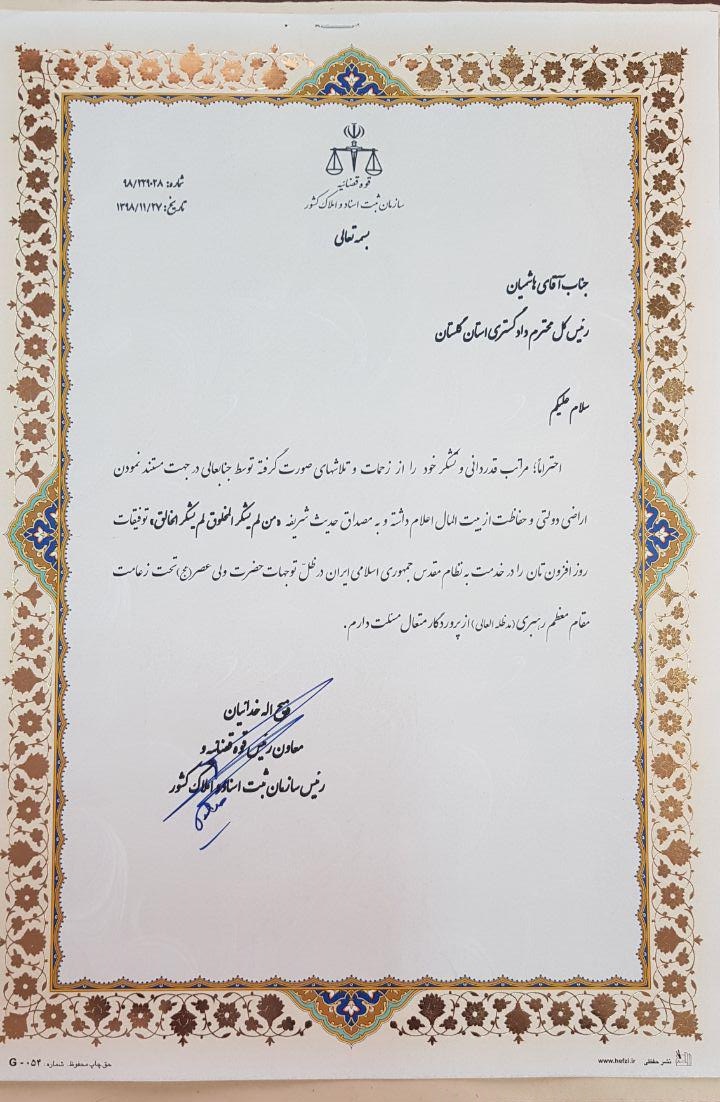 قوه قضائیه
سازمان ثبت اسناد و املاک کشور
شماره: ۹۸/۲۲۹۰۲۸
تاریخ: ۱۳۹۸/۱۱/۲۷
بسمه تعالی
جناب آقای هاشمیان
رئیس کل محترم دادگستری استان گلستان
سلام علیکم
احتراماً؛ مراتب قدردانی و تشکر خود را از زحمات و تلاشهای صورت گرفته توسط جنابعالی در جهت مستند نمودن
اراضی دولتی و حفاظت از بیت المال اعلام داشته و به مصداق حدیث شریفه «من لم یشکر المخلوق لم یشکر الخالق» توفیقات
روز افزون تان را در خدمت به نظام مقدس جمهوری اسلامی ایران در ظلّ توجهات حضرت ولی عصر(عج) تحت زعامت
مقام معظم رهبری (مدظله العالی) از پروردگار متعال مسئلت دارم.
ذبیح اله خدائیان
معاون رئیس قوه قضائیه و
رئیس سازمان ثبت اسناد و املاک کشور
نشر حفظی www.hefzi.ir
حق چاپ محفوظ. شماره: G - ۰۵۴